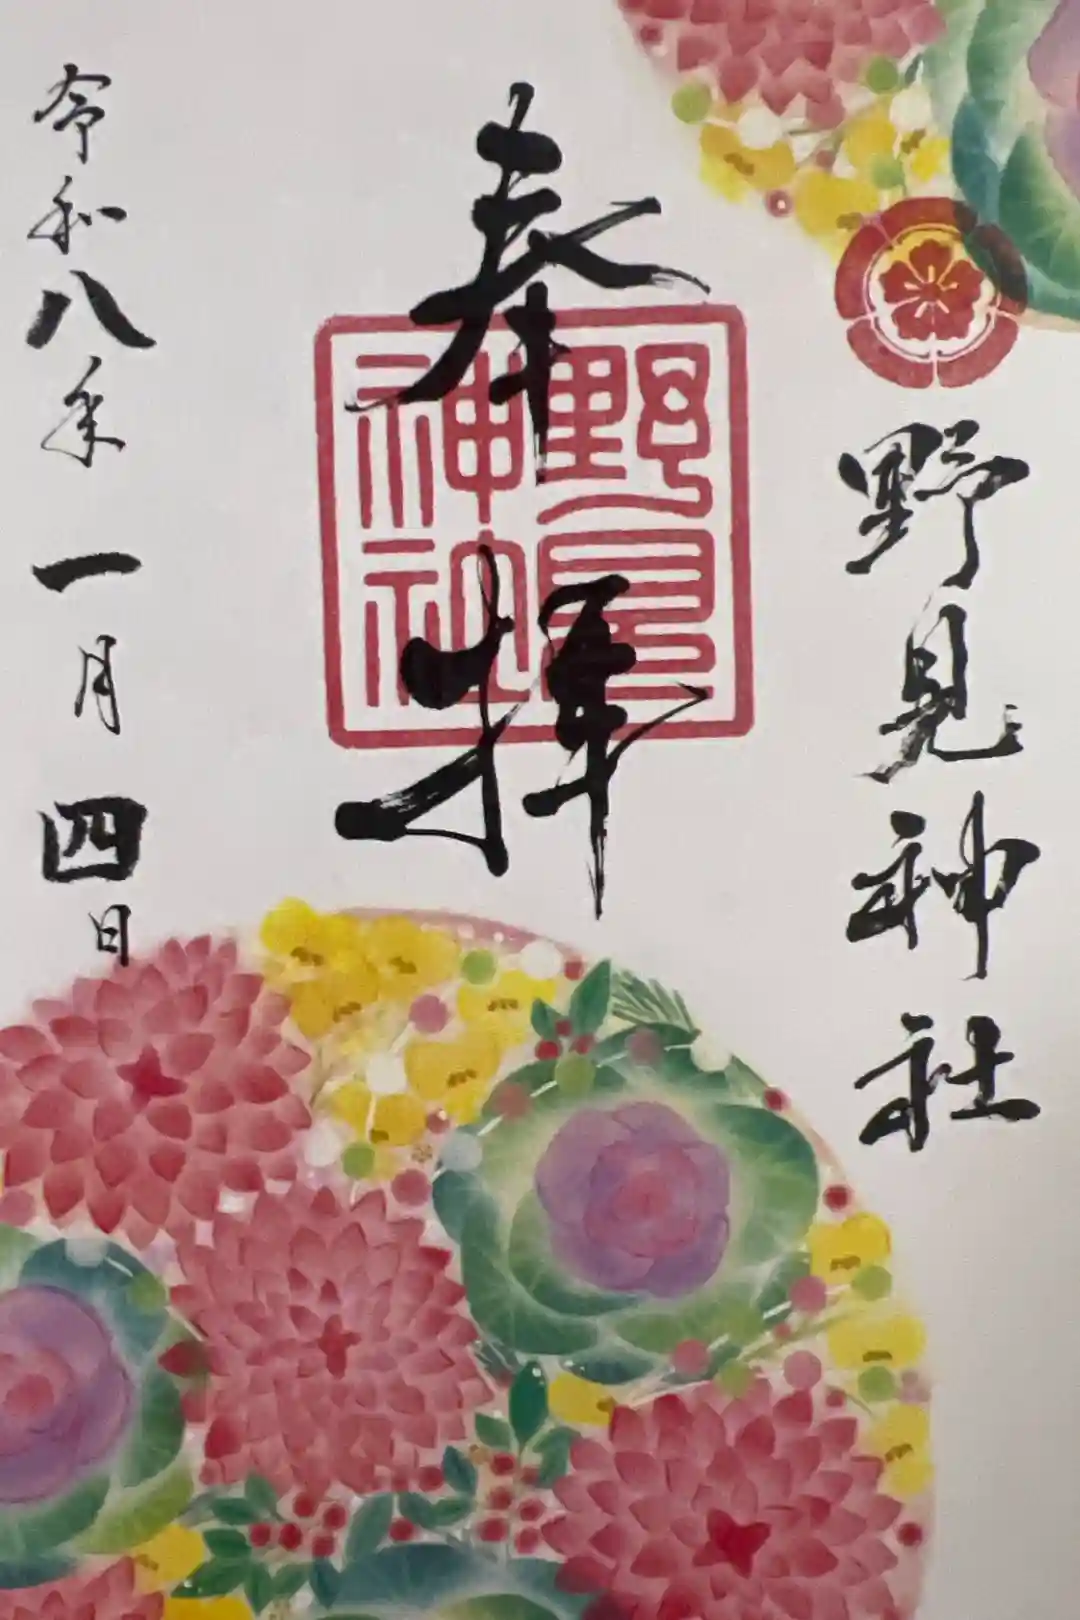 野見神社
奉拝
野見
神社
令和八年一月四日